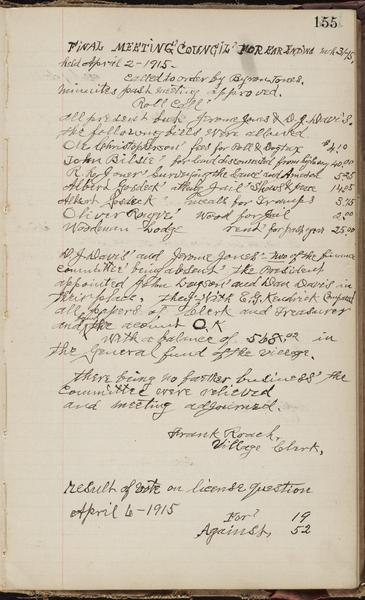 155
FINAL MEETING COUNCIL FOR YEAR ENDING
held April 2-1915.
Called to order by Byron Jones.
minutes past meeting approved.
Roll Call"
all present but Jerome Jones & D.J. Davis.
the following bills were allowed
Ole Christopherson fees for Poll & Dogtax $4.10
John Bilsie for land discounted from highway 40.00
R.R. Jones Surveying the Lane and 5.25
Albert Jail" Shows & 14.25
Albert meals for Tramps 3.75
Oliver Wood for Jail 2.00
Woodman Lodge rent for past year 25.00
D.J. Davis" and Jerome Jones" two of the finance
Committee being absent the President
appointed John and Dan Davis in
their place, they with E.G. Kendrick Compared
all papers of Clerk and Treasurer
and found the acount O.K
With a balance of 568.02 in
the General fund of the village.
there being no further business the
Committee were relieved
and meeting adjourned.
Frank Roach,
Village Clerk,
Result of vote on license question
April 6-1915
For" 19
Against, 52